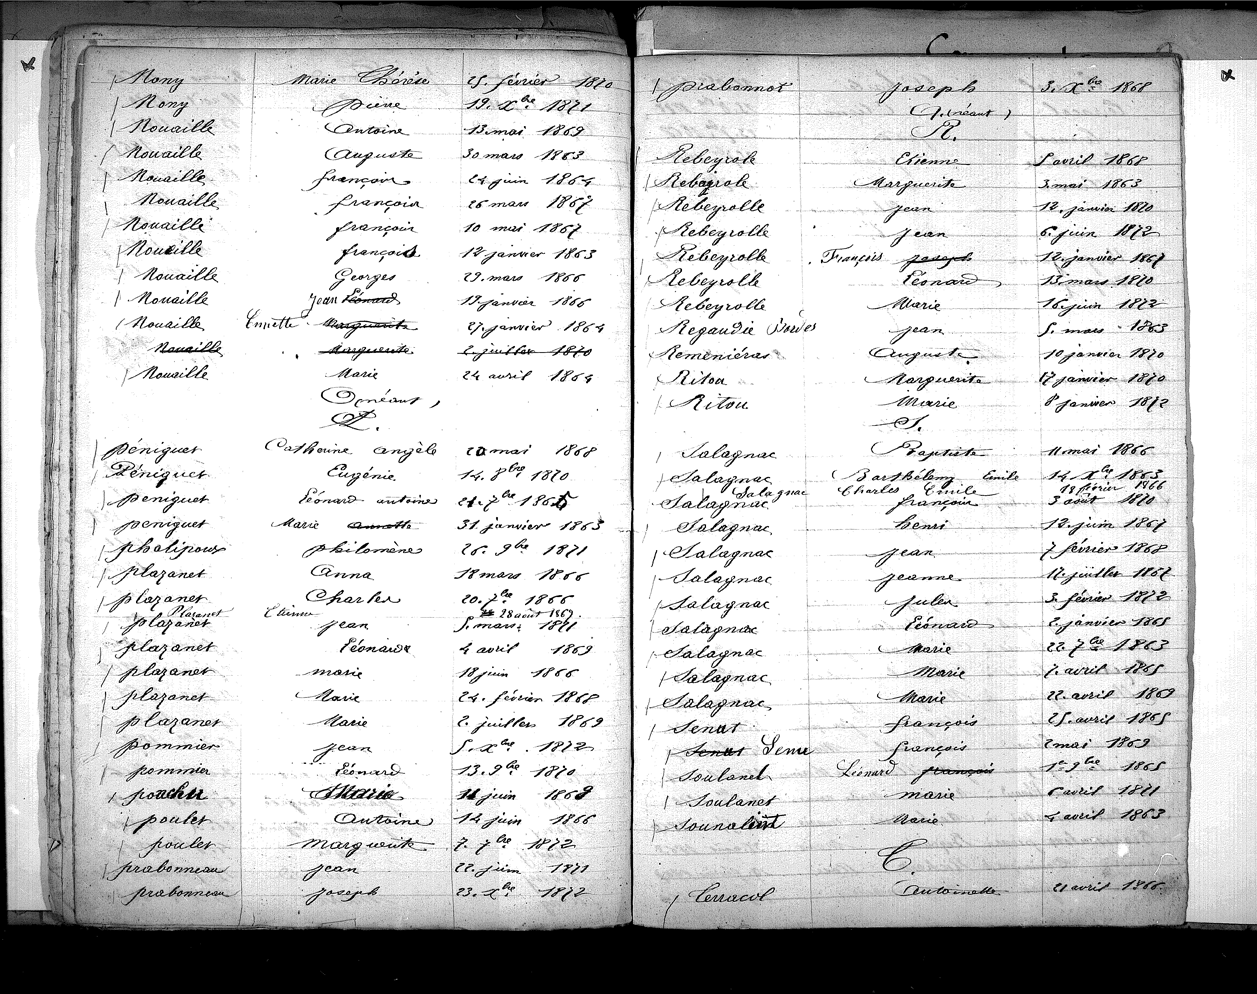 Mony Marie Thérèse 25. février 1870
Mony pierre 19. Xbre 1871
Nouaille Antoine 13. mai 1869
Nouaille Auguste 30 mars 1863
Nouaille françois 24 juin 1864
Nouaille françois 26 mars 1867
Nouaille françois 10 mai 1867
Nouaille françois 12 janvier 1863
Nouaille Georges 29. mars 1866
Nouaille Jean Léonard janvier 1866
Nouaille Marguerite 27. janvier 1864
Nouaille Marguerite 2. juillet 1870
Nouaille Marie 24 avril 1864
O (néant)
P.
péniguet Catherine angèle mai 1868
Péniguet Eugénie 14. 8bre 1870
peniguet Léonard antoine 21. 7bre 1865
peniguet Marie annette 31. janvier 1863
phalipoux philomène 26. 9bre 1871
plazanet Anna 18 mars 1866
plazanet Charles 20. 7bre 1866
Plazanet Etienne 28 août 1869
plazanet jean 5. mars 1871
plazanet Léonard 4 avril 1869
plazanet marie 18 juin 1866
plazanet Marie 24. février 1868
plazanet Marie 2. juillet 1869
pommier jean 5. Xbre 1872
pommier Léonard 13. 9bre 1870
Marie juin 1869
poulet Antoine 14 juin 1866
poulet marguerite 7. 7bre 1872
prabonneau jean 22. juin 1871
prabonneau joseph 23. Xbre 1872
prabonnot joseph 3. Xbre 1868
Q. (néant)
R.
Rebeyrole Etienne 5 avril 1868
Marguerite 3. mai 1863
Rebeyrolle jean 12. janvier 1870
Rebeyrolle jean 6. juin 1872
Rebeyrolle François joseph 12. janvier 1867
Rebeyrolle Léonard 13. mars 1870
Rebeyrolle Marie 16. juin 1872
Regaudie Bordes jean 5. mars 1863
Remeniéras Auguste 10 janvier 1870
Ritou Marguerite 17 janvier 1870
Ritou Marie 8 janvier 1872
S.
Salagnac Baptiste 11 mai 1866
Salagnac Barthélemy Emile 14 Xbre 1863
Salagnac Charles Emile 18 février 1866
Salagnac françois 3 août 1870
Salagnac henri 12. juin 1867
Salagnac jean 7 février 1868
Salagnac jeanne juillet 1867
Salagnac jules 3. février 1872
Salagnac Léonard 2. janvier 1865
Salagnac Marie 22. 7bre 1863
Salagnac Marie 7. avril 1865
Salagnac Marie 22. avril 1869
Senut françois 25. avril 1865
Senut françois 2 mai 1869
Soulanet Léonard françois 1er 9bre 1865
Soulanet marie 6 avril 1871
Marie 4 avril 1863
T.
Terracol Antoinette 21 avril 1866